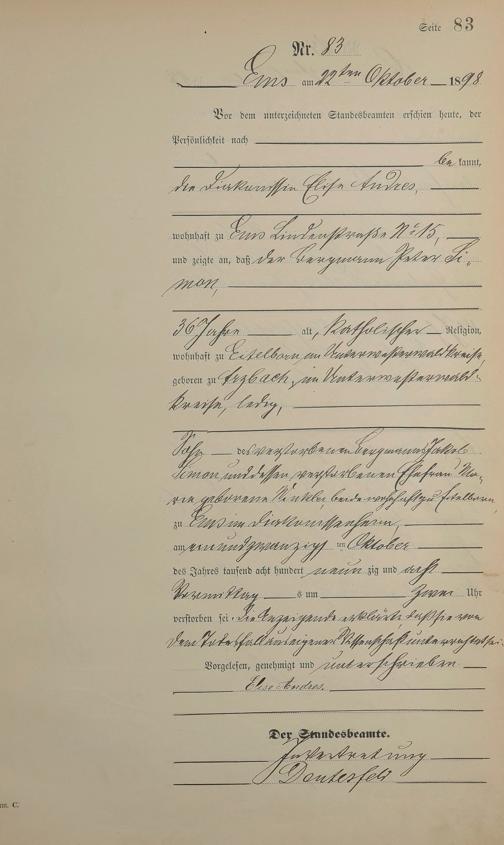 Seite 83
Nr. 83
Ems am 22ten Oktober 1898
Vor dem unterzeichneten Standesbeamten erschien heute, der
Persönlichkeit nach
be kannt,
die Diakonissin Elise Andres,
wohnhaft zu Ems Lindenstraße No 15,
und zeigte an, daß der Bergmann Peter Si-
mon,
36 Jahre alt, Katholischer Religion,
wohnhaft zu Eitelborn, im Unterwesterwaldkreise
geboren zu Arzbach, im Unterwesterwald-
kreise, ledig,
Sohn des verstorbenen Bergmanns Jakob
Simon und dessen verstorbenen Ehefrau Ma-
ria geborene beide wohnhaft zu Eitelborn,
zu Ems im Diakonissenheim,
am einundzwanzigs ten Oktober
des Jahres tausend acht hundert neun zig und acht
Vormittag s um zwei Uhr
verstorben sei. Die Anzeigende erklärte, daß sie von
dem Todesfall aus eigener Wissenschaft unterrichtet sei.
Vorgelesen, genehmigt und unterschrieben
Elise Andres.
Der Standesbeamte.
In Vertretung
C.